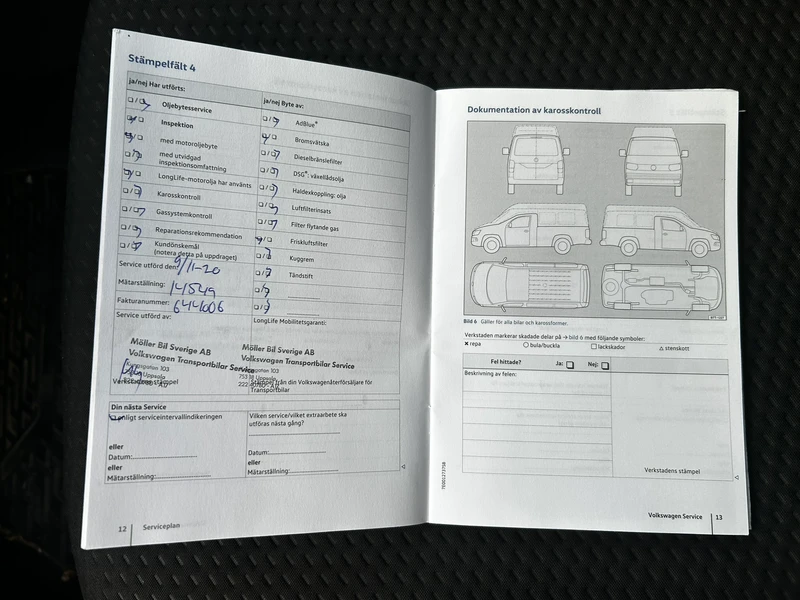 Stämpelfält 4
ja/nej Har utförts:
Oljebytesservice
Inspektion
med motoroljebyte
med utvidgad
inspektionsomfattning
LongLife-motorolja har använts
Karosskontroll
Gassystemkontroll
Reparationsrekommendation
Kundönskemål
(notera detta på uppdraget)
Service utförd den: 9/11-20
Mätarställning: 14549
Fakturanummer: 6441006
Service utförd av:
Möller Bil Sverige AB
Volkswagen Transportbilar Service
103
Uppsala
Verkstadens stämpel
ja/nej Byte av:
AdBlue®
Bromsvätska
Dieselbränslefilter
DSG®: växellådsolja
Haldexkoppling: olja
Luftfilterinsats
Filter flytande gas
Friskluftsfilter
Kuggrem
Tändstift
LongLife Mobilitetsgaranti:
Möller Bil Sverige AB
Volkswagen Transportbilar Service
103
Uppsala
Stämpel från din Volkswagenåterförsäljare för
Transportbilar
Din nästa Service
enligt serviceintervallindikeringen
eller
Datum:
eller
Mätarställning:
Vilken service/vilket extraarbete ska
utföras nästa gång?
Datum:
eller
Mätarställning:
12 Serviceplan
Dokumentation av karosskontroll
Bild 6 Gäller för alla bilar och karossformer.
Verkstaden markerar skadade delar på → bild 6 med följande symboler:
× repa ○ bula/buckla □ lackskador △ stenskott
Fel hittade? Ja: Nej:
Beskrivning av felen:
Verkstadens stämpel
Volkswagen Service 13